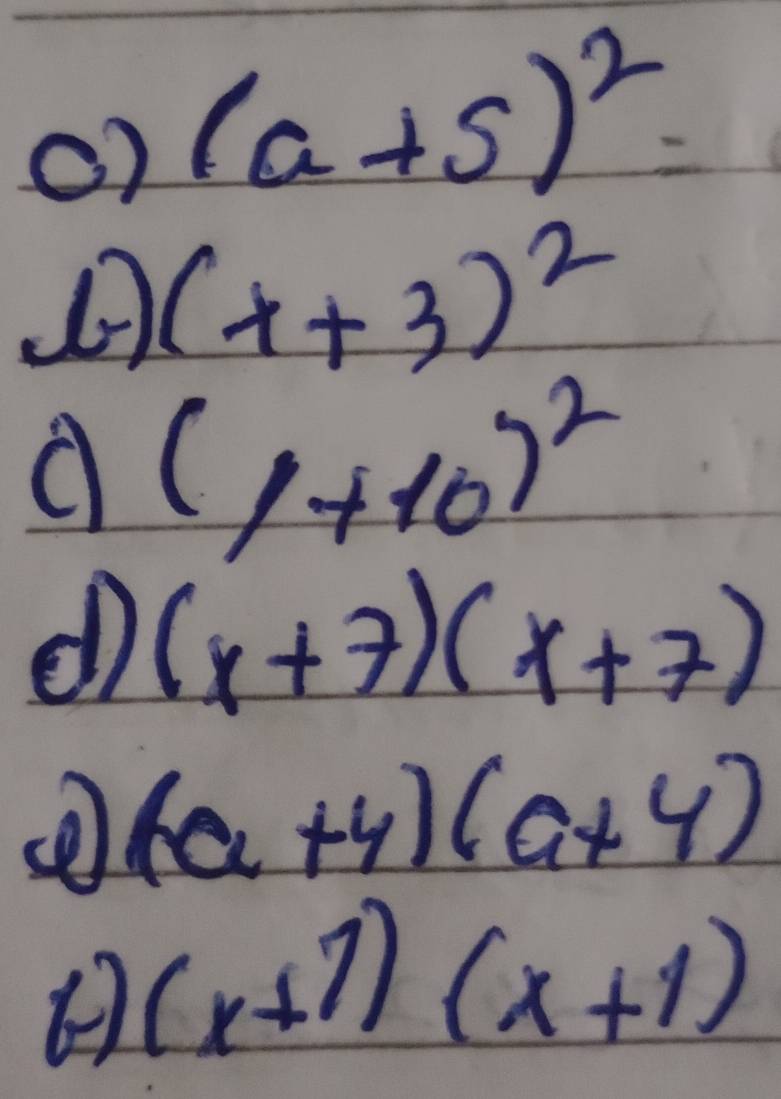 a) (a + 5)² =
b) (x + 3)²
c) ( + 10)²
d) (x + 7)(x + 7)
e) (a + 4)(a + 4)
f) (x + 1) (x + 1)